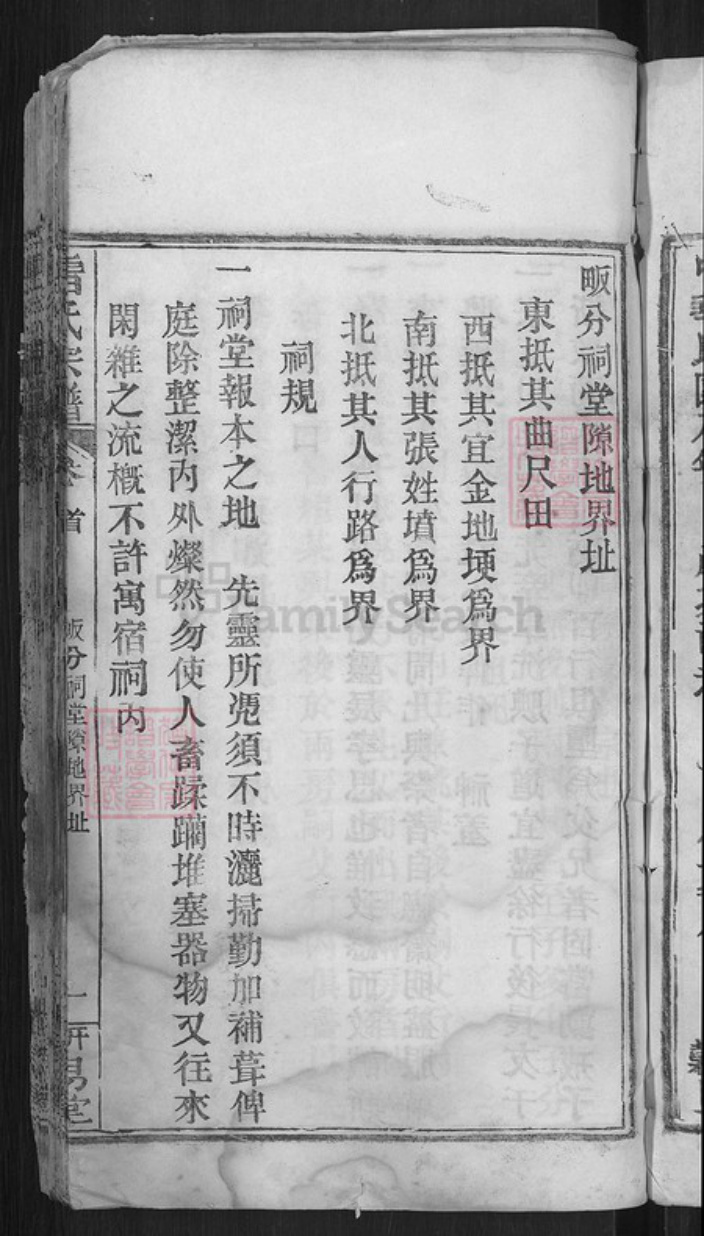 畈分祠堂隙地界址
東抵其曲尺田
西抵其宜金地埂爲界
南抵其張姓墳爲界
北抵其人行路爲界
祠規
一祠堂報本之地 先靈所凴須不時灑掃勤加補葺俾
庭除整潔內外燦然勿使人畜蹂躪堆塞器物又往來
閑雜之流槪不許寓宿祠內
氏宗譜
首
畈分祠堂隙地界址
一
易堂
FamilySearch